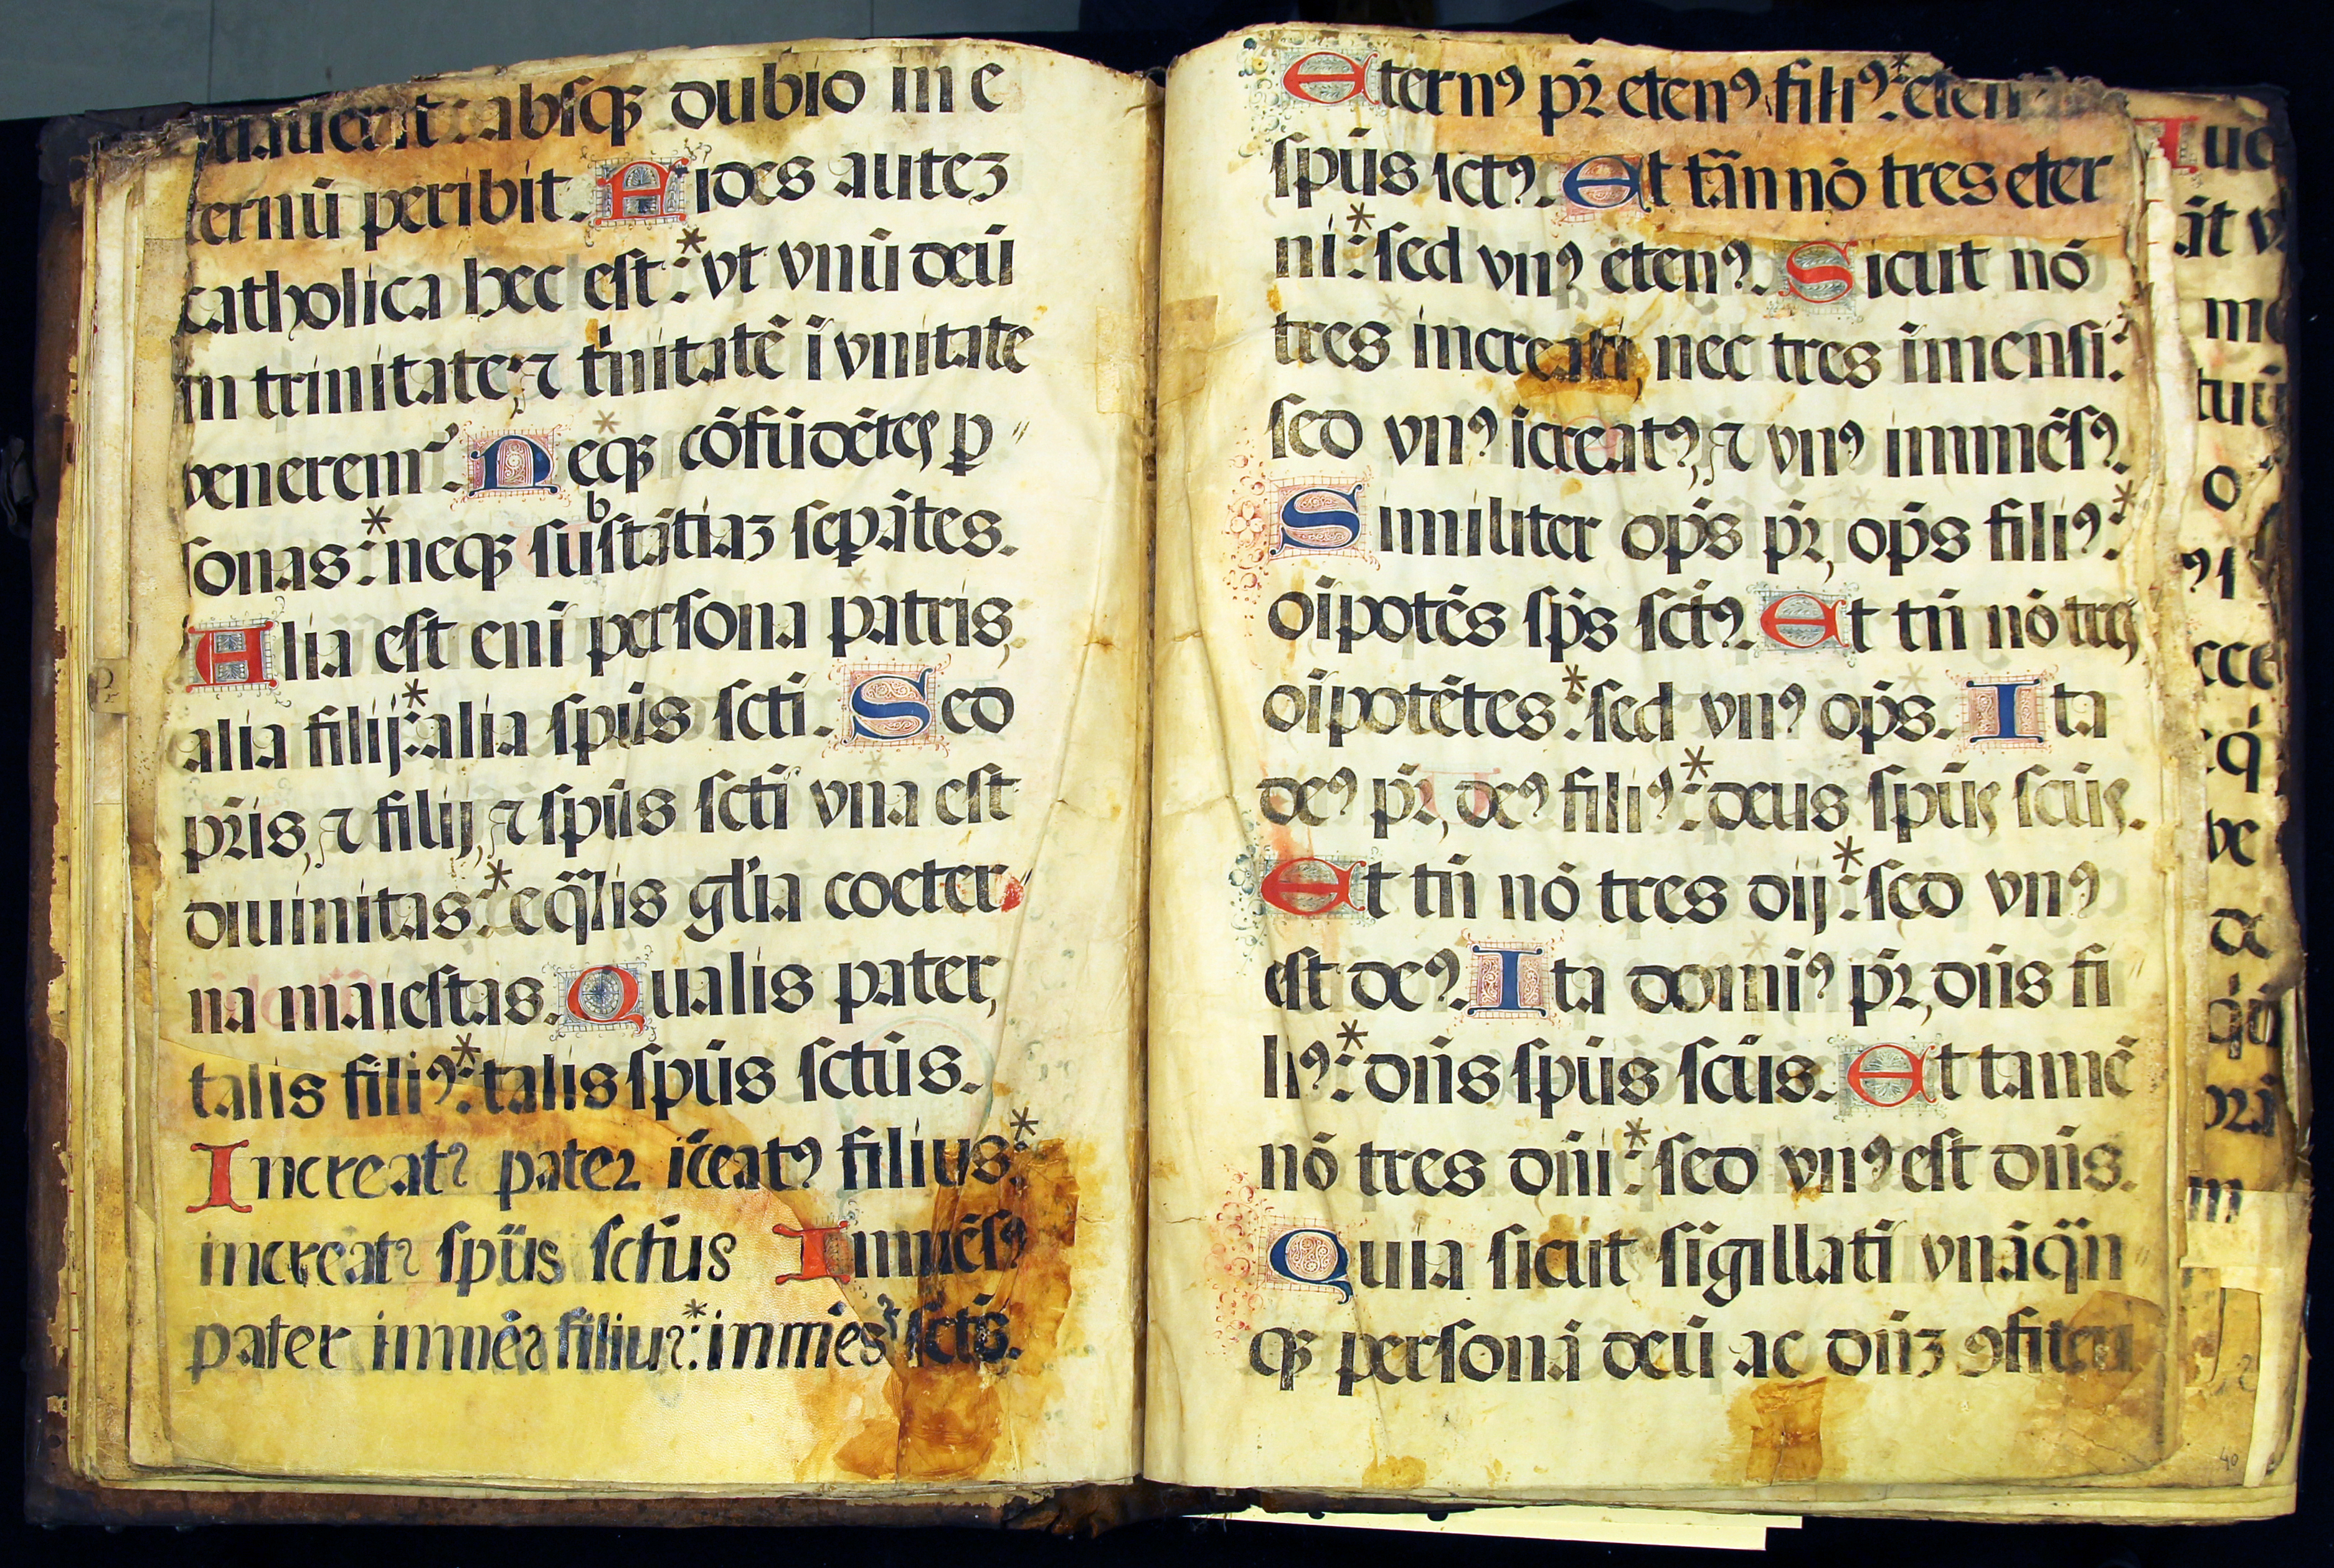 absq dubio in e
ernū peribit. Fides autez
catholica hec est: vt vnū deū
in trinitate, ⁊ t̄nitatē ī vnitate
venerem̃. Neqꝫ cōfūdētes ꝑ
sonas: neqꝫ substātiaꝫ sepātes.
Alia est eni persona patris,
alia filij: alia spūs scti. Sed
pr̄is, ⁊ filij, ⁊ spūs sctī vna est
diuinitas: eq̄lis gl'ia coeter
na maiestas. Qualis pater,
talis filiꝰ: talis spūs sctūs.
Increatꝰ pater īc̄eatꝰ filius:
increatꝰ spūs sctūs Inmēsꝰ
pater inmēs filius: inmēs sctūs.
Eternꝰ pr̄ etenꝰ filiꝰ: eten
spūs sctꝰ. Et tām nō tres eter
ni: sed vnꝰ etenꝰ. Sicut nō
tres increati, nec tres īmensi:
sed vnꝰ īcreatꝰ, ⁊ vnꝰ immēsꝰ.
Similiter op̄s pr̄, op̄s filiꝰ:
oīpotēs sp̄s sctꝰ. Et tn̄ nō tres
oīpotētes: sed vnꝰ op̄s. Ita
deꝰ pr̄, deꝰ filiꝰ: deus spūs scūs.
Et tn̄ nō tres dij: sed vnꝰ
est deꝰ. Ita domiꝰ pr̄, dn̄s fi
liꝰ: dn̄s spūs scūs. Et tamē
nō tres dn̄i: sed vnꝰ est dn̄s.
Quia sicut sīgillatī vnāq̄n
qꝫ personā deū ac dn̄ꝫ ꝯfiteri
40